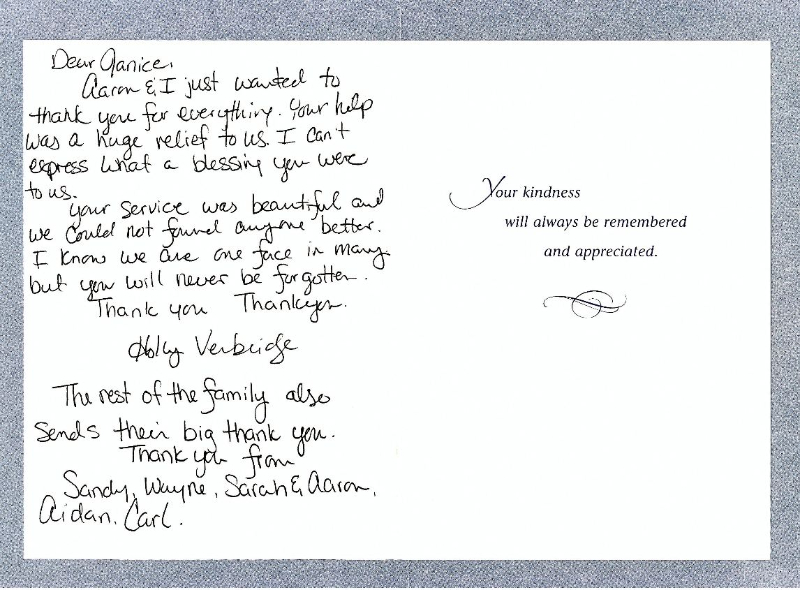 Dear Janice,
Aaron & I just wanted to
thank you for everything. Your help
was a huge relief to us. I can't
express what a blessing you were
to us.
Your service was beautiful and
we could not found anyone better.
I know we are one face in many
but you will never be forgotten.
Thank you Thankyou.
Holly Verbridge
The rest of the family also
sends their big thank you.
Thank you from
Sandy, Wayne, Sarah & Aaron,
Aidan, Carl.
Your kindness
will always be remembered
and appreciated.